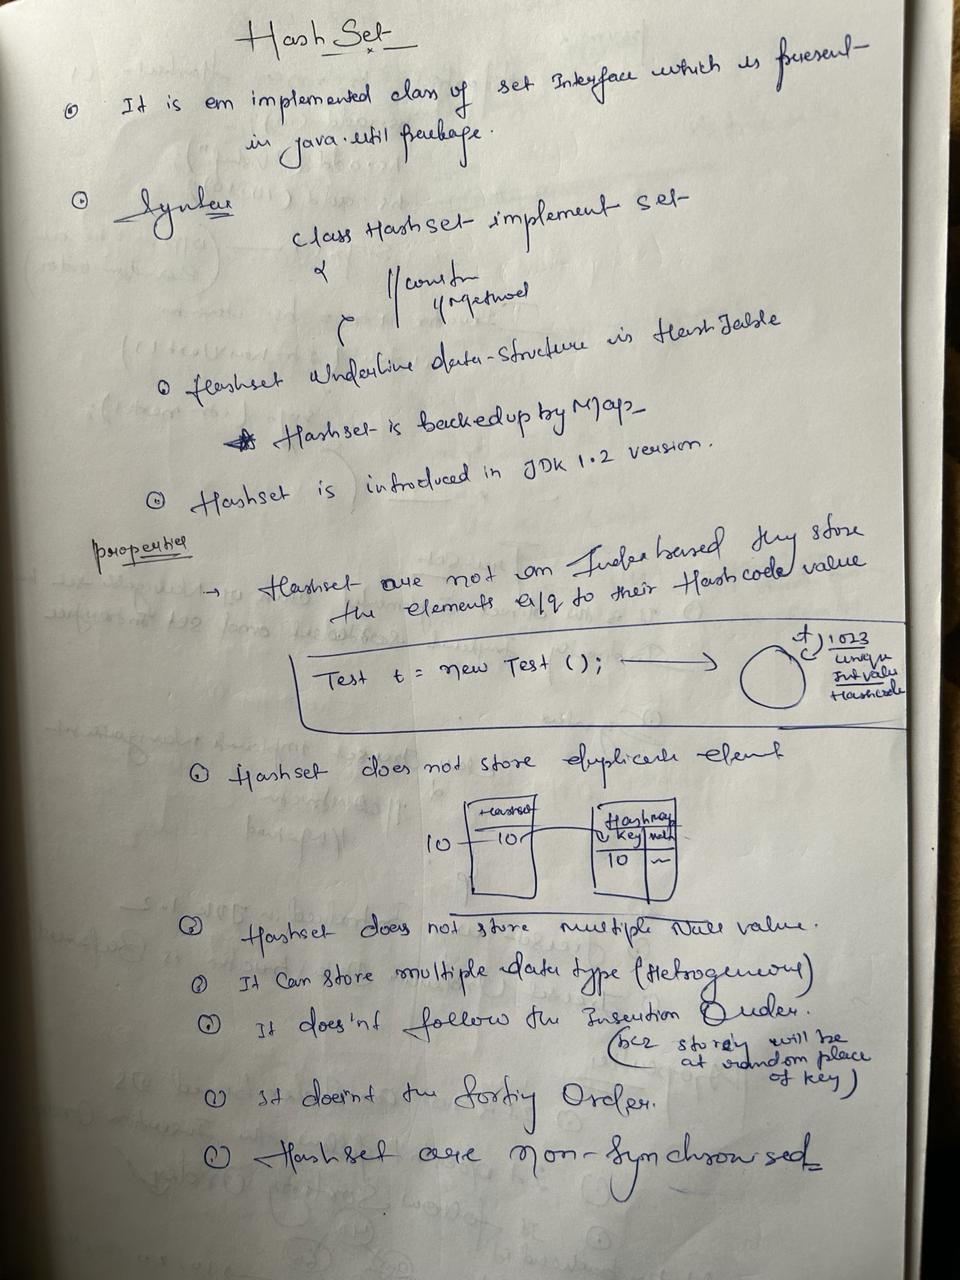 HashSet
It is an implemented class of set Interface which is present
in java.util package.
Syntax
class Hashset implement set
{
// constr
// Method
}
Hashset underline data-structure is HashTable
Hashset is backedup by Map
Hashset is introduced in JDK 1.2 version.
properties
→ Hashset are not an Index based they store
the elements a/q to their Hashcode value
Test t = new Test (); →
t 1023
unique
Int value
Hashcode
Hashset does not store duplicate elent
Hashset
Hashmap
10 10
key
10
Hashset does not store multiple Null value.
It Can store multiple data type (Hetrogenous)
It does'nt follow the Insertion Order.
(bcz storeg will be
at random place
of key)
It doesnt the sortig Order.
Hashset are non-synchronised